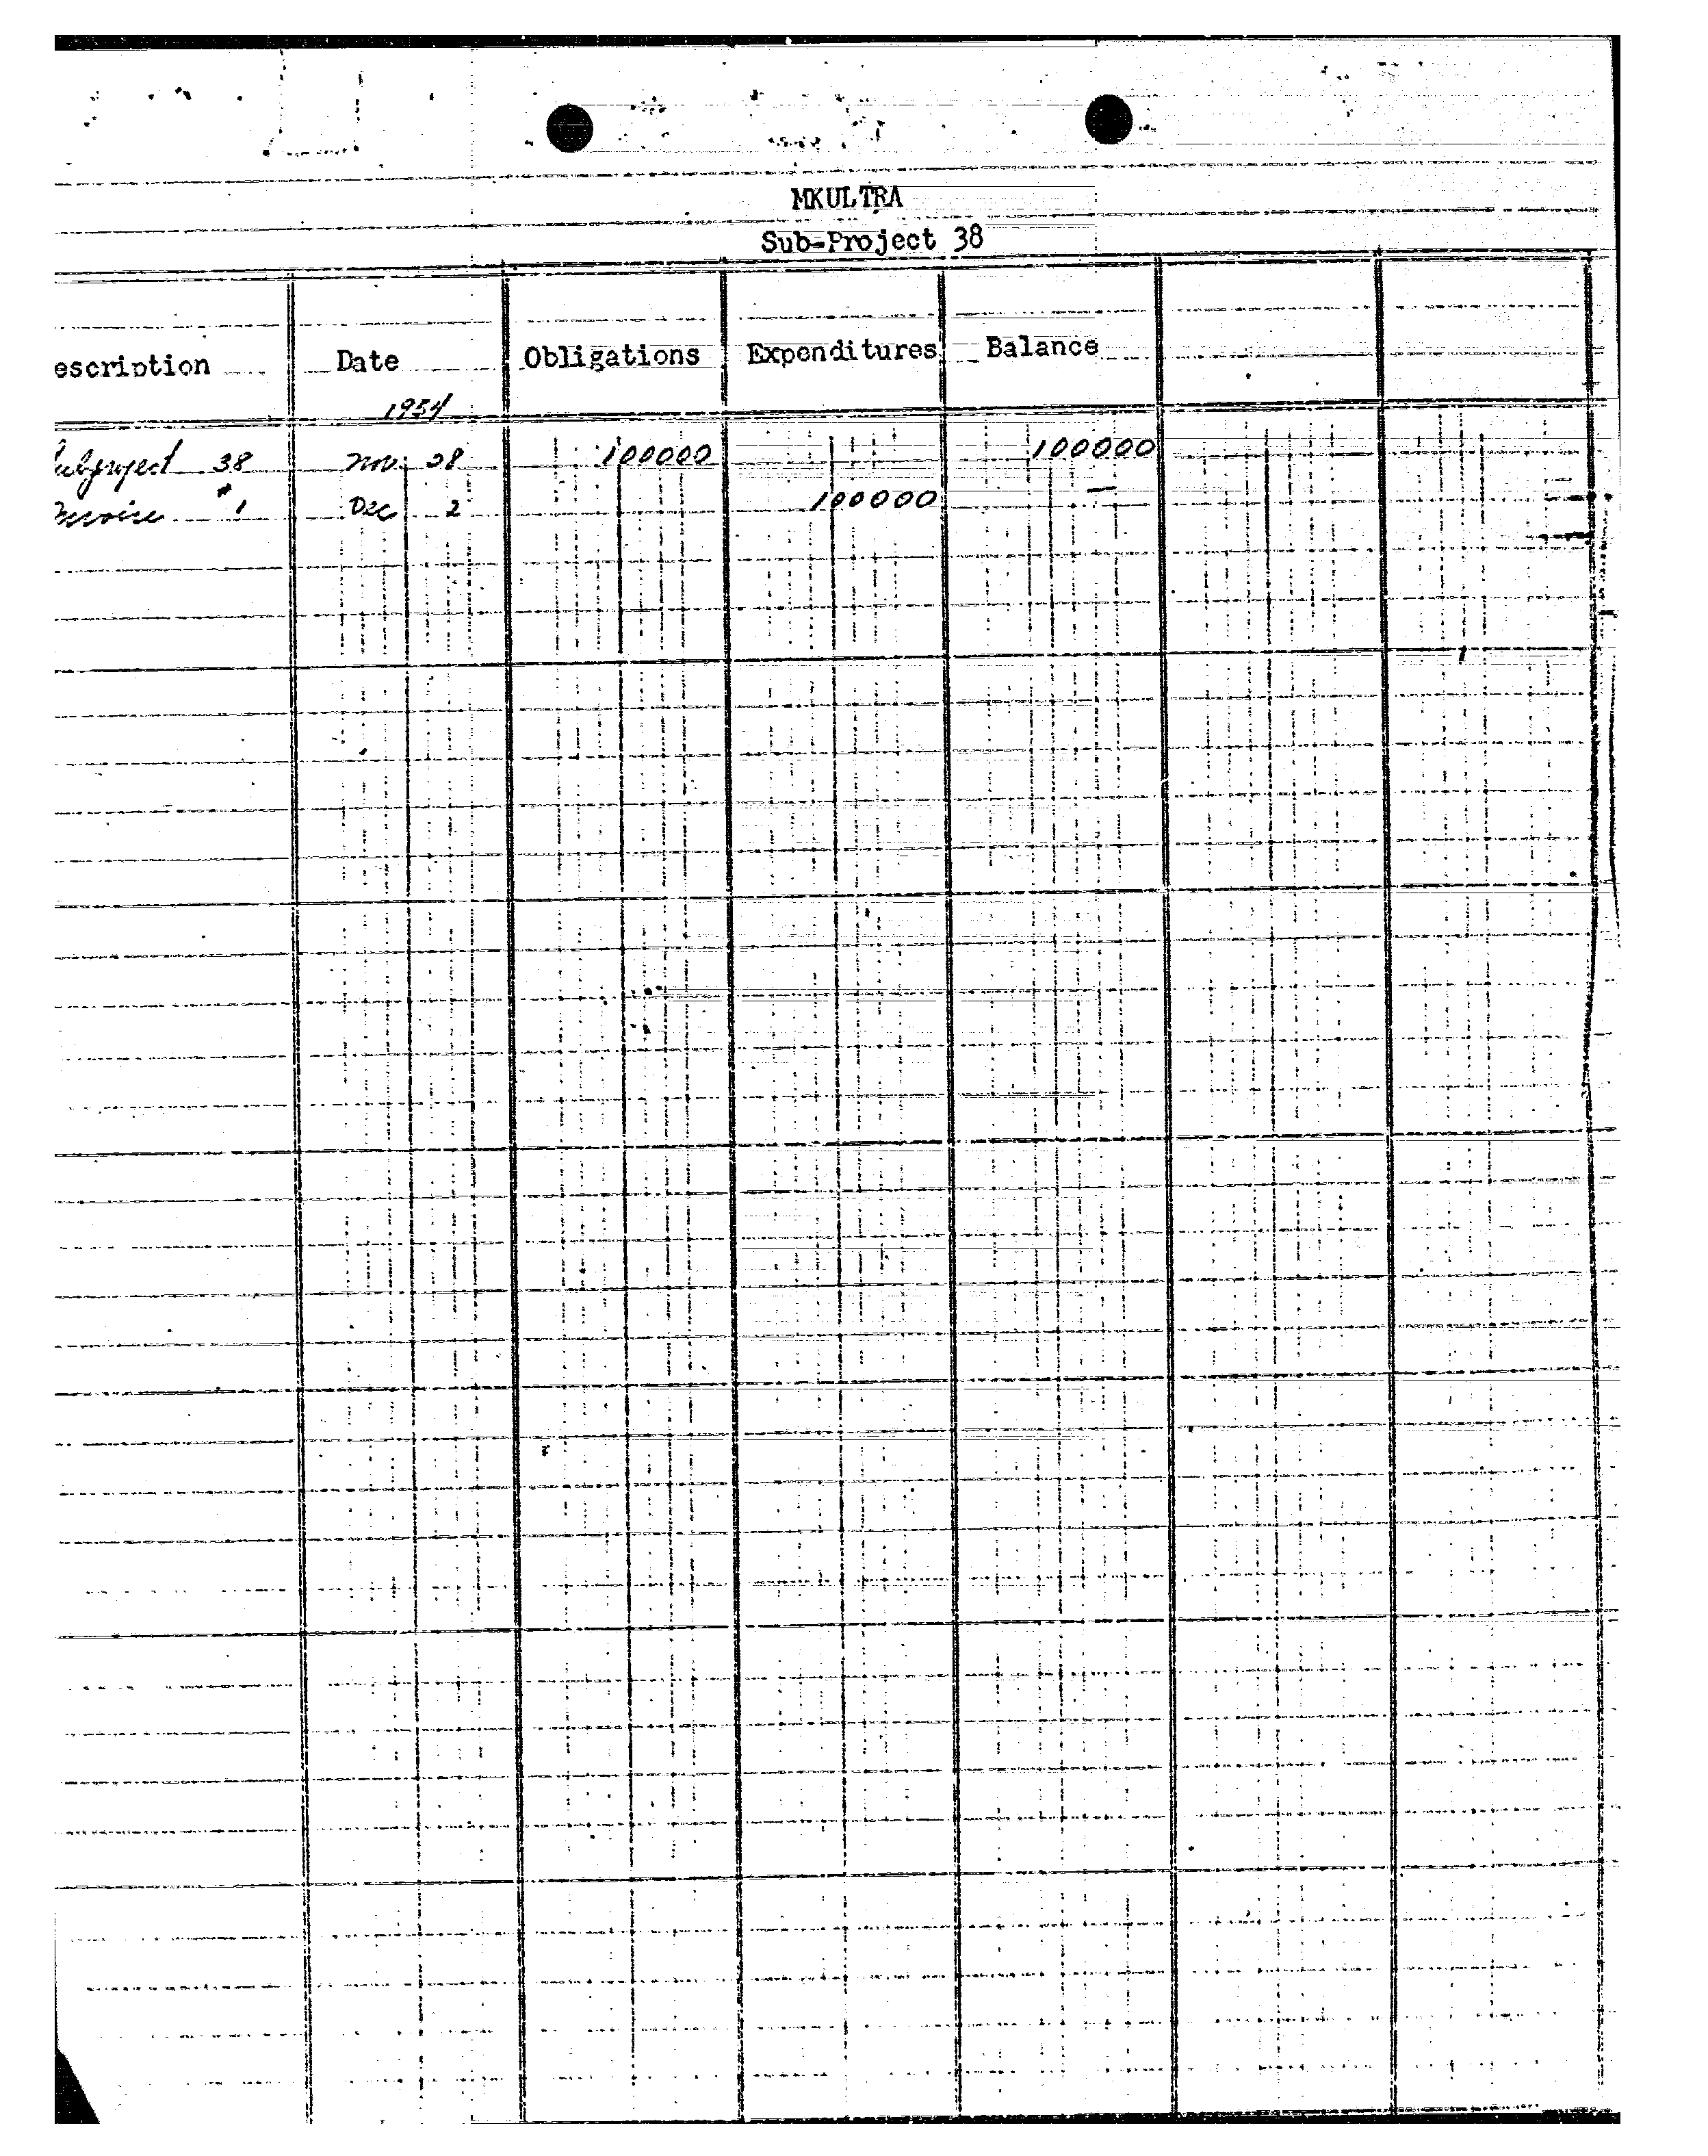 MKULTRA
Sub-Project 38
escription Date Obligations Expenditures Balance
1954
ubproject 38 Nov. 100000 100000
Invoice #1 Dec 2 100000 —